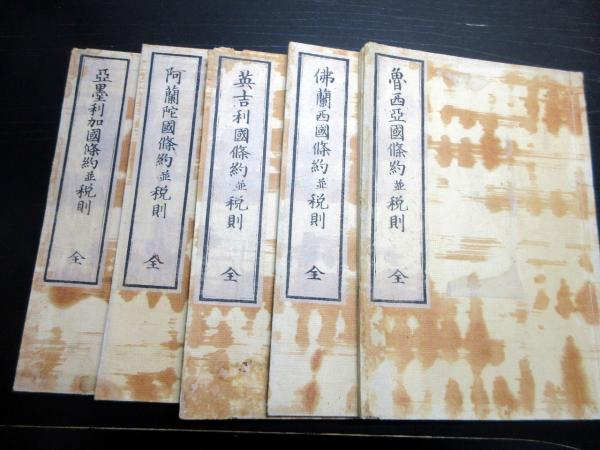 魯西亞國條約並税則 全
佛蘭西國條約並税則 全
英吉利國條約並税則 全
阿蘭陀國條約並税則 全
亞墨利加國條約並税則 全